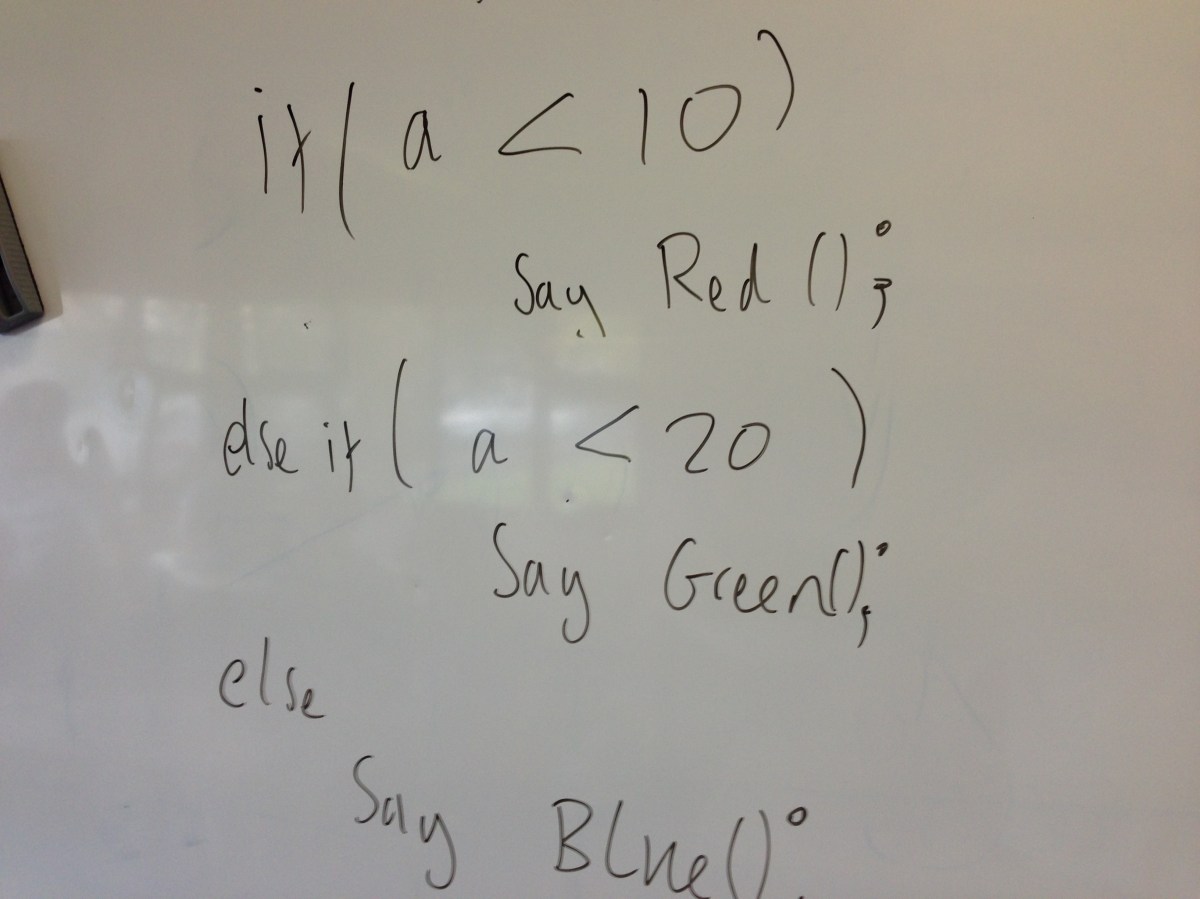 if( a < 10 )
Say Red ();
else if ( a < 20 )
Say Green();
else
Say Blue();